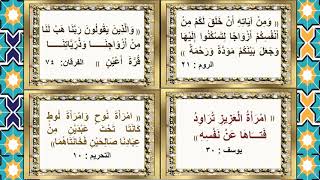 (( وَمِنْ آيَاتِهِ أَنْ خَلَقَ لَكُمْ مِنْ
أَنْفُسِكُمْ أَزْوَاجًا لِتَسْكُنُوا إِلَيْهَا
وَجَعَلَ بَيْنَكُمْ مَوَدَّةً وَرَحْمَةً ))
الروم : ٢١
(( وَالَّذِينَ يَقُولُونَ رَبَّنَا هَبْ لَنَا
مِنْ أَزْوَاجِنَا وَذُرِّيَّاتِنَا
قُرَّةَ أَعْيُنٍ )) الفرقان: ٧٤
(( امْرَأَةُ الْعَزِيزِ تُرَاوِدُ
فَتَاهَا عَنْ نَفْسِهِ ))
يوسف : ٣٠
(( امْرَأَةَ نُوحٍ وَامْرَأَةَ لُوطٍ
كَانَتَا تَحْتَ عَبْدَيْنِ مِنْ
عِبَادِنَا صَالِحَيْنِ فَخَانَتَاهُمَا ))
التحريم : ١٠